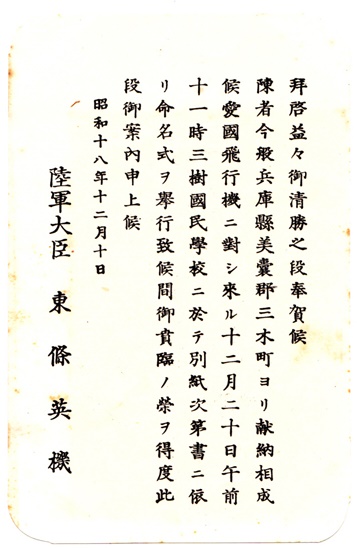 拜啓益々御清勝之段奉賀候
陳者今般兵庫縣美嚢郡三木町ヨリ献納相成
候愛國飛行機ニ對シ來ル十二月二十日午前
十一時三樹國民學校ニ於テ別紙次第書ニ依
リ命名式ヲ擧行致候間御賁臨ノ榮ヲ得度此
段御案內申上候
昭和十八年十二月十日
陸軍大臣 東條英機